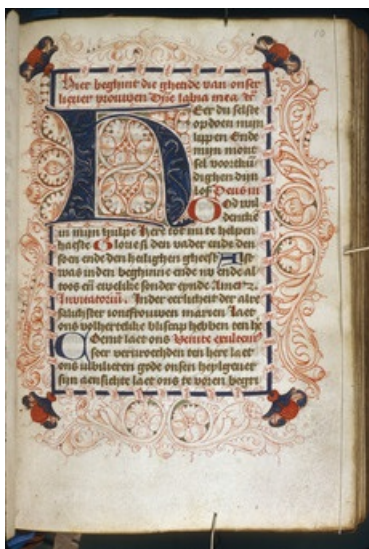 10
Hier beghint die ghetide van onser
liever vrouwen Dne labia mea
HEer du selste
opdoen mijn
lippen Ende
mijn mont
sel voortku
dighen dijn
lof Deus in
God wil
dencke
in mijn hulpe here tot mi te helpen
haeste Glorie si den vader ende den
soen ende den heilighen gheest Alst
was inden beghinne ende nv ende al
toos en ewelike sonder eynde Amen
Invitatorium. Inder eerlicheit der alre
salichster ioncfrouwen marien laet
ons volhertelike bliscap hebben ten he
COemt laet ons Venite exultem
seer vervroechden ten here laet
ons iubilieren gode onsen heylgeuer
sijn aensichte laet ons te voren begri